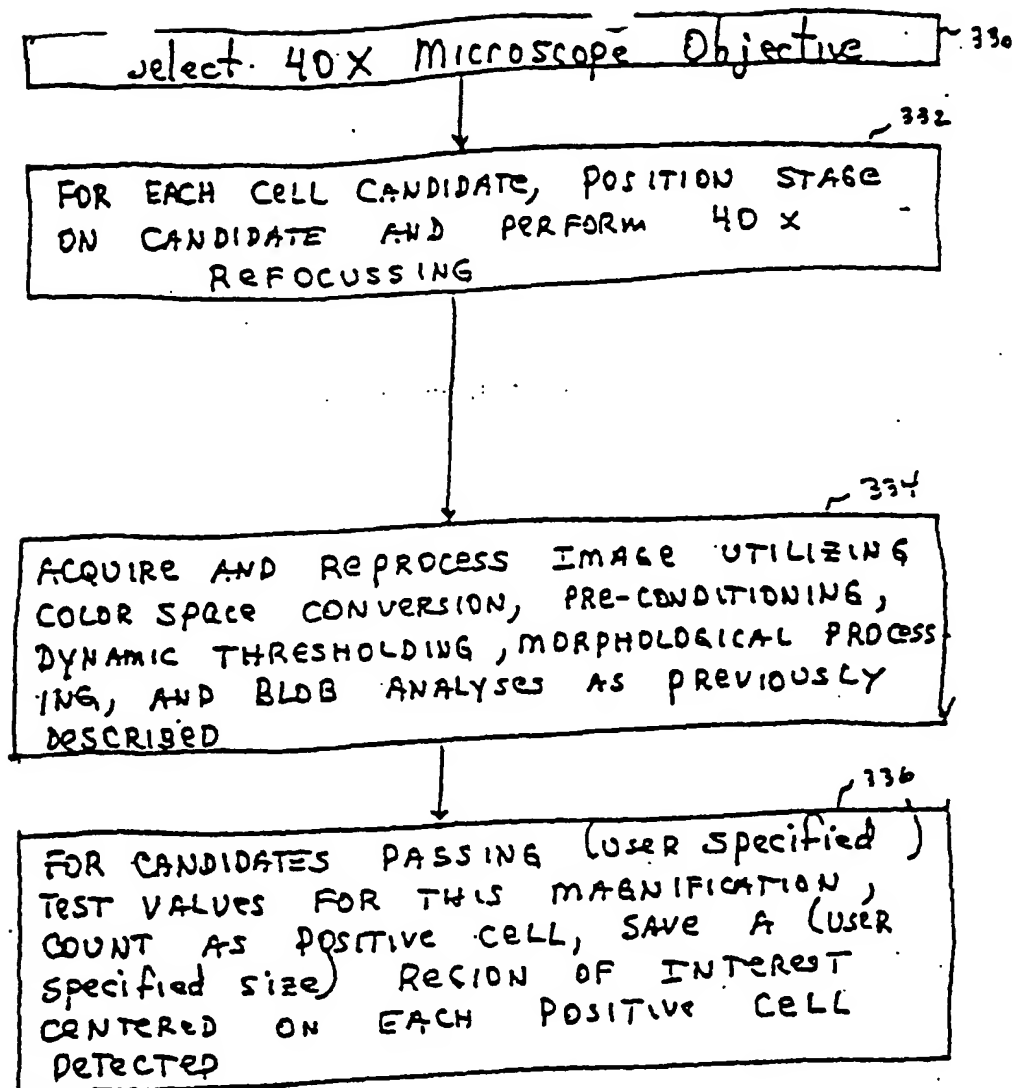 330
select 40X Microscope Objective
332
FOR EACH CELL CANDIDATE, POSITION STAGE
ON CANDIDATE AND PERFORM 40 X
REFOCUSSING
334
ACQUIRE AND REPROCESS IMAGE UTILIZING
COLOR SPACE CONVERSION, PRE-CONDITIONING,
DYNAMIC THRESHOLDING, MORPHOLOGICAL PROCESS
ING, AND BLOB ANALYSES AS PREVIOUSLY
DESCRIBED
336
FOR CANDIDATES PASSING (USER Specified)
TEST VALUES FOR THIS MAGNIFICATION,
COUNT AS POSITIVE CELL, SAVE A (USER
specified size) REGION OF INTEREST
CENTERED ON EACH POSITIVE CELL
DETECTED